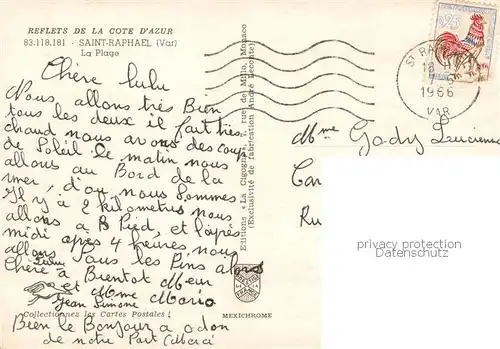 REFLETS DE LA COTE D'AZUR
83.118.181 - SAINT-RAPHAEL (Var)
La Plage
Chère Lulu
Nous allons très Bien
tous les deux il fait très
chaud nous avons des coup
de Soleil le matin nous
allons au Bord de la
mer, d'ou nous Sommes
Il y a 2 kilomètres nous
allons a Pied, et l'après
midi après 4 heures nous
allons Sous les Pins alors
Chère Lulu a Bientot Meur
et Mme Mario
Jean Simone
Collectionnez les Cartes Postales !
Bien le Bonjour a odon
de notre Part Merci
Editions «La Cigogne», 7, rue del Millo, Monaco
(Exclusivité de fabrication André Leconte)
MEXICHROME
0,25
ST RA
18 H
1966
VAR
Mme Gady Lucienne
Car
Ru
privates Angebot
Datenschutz